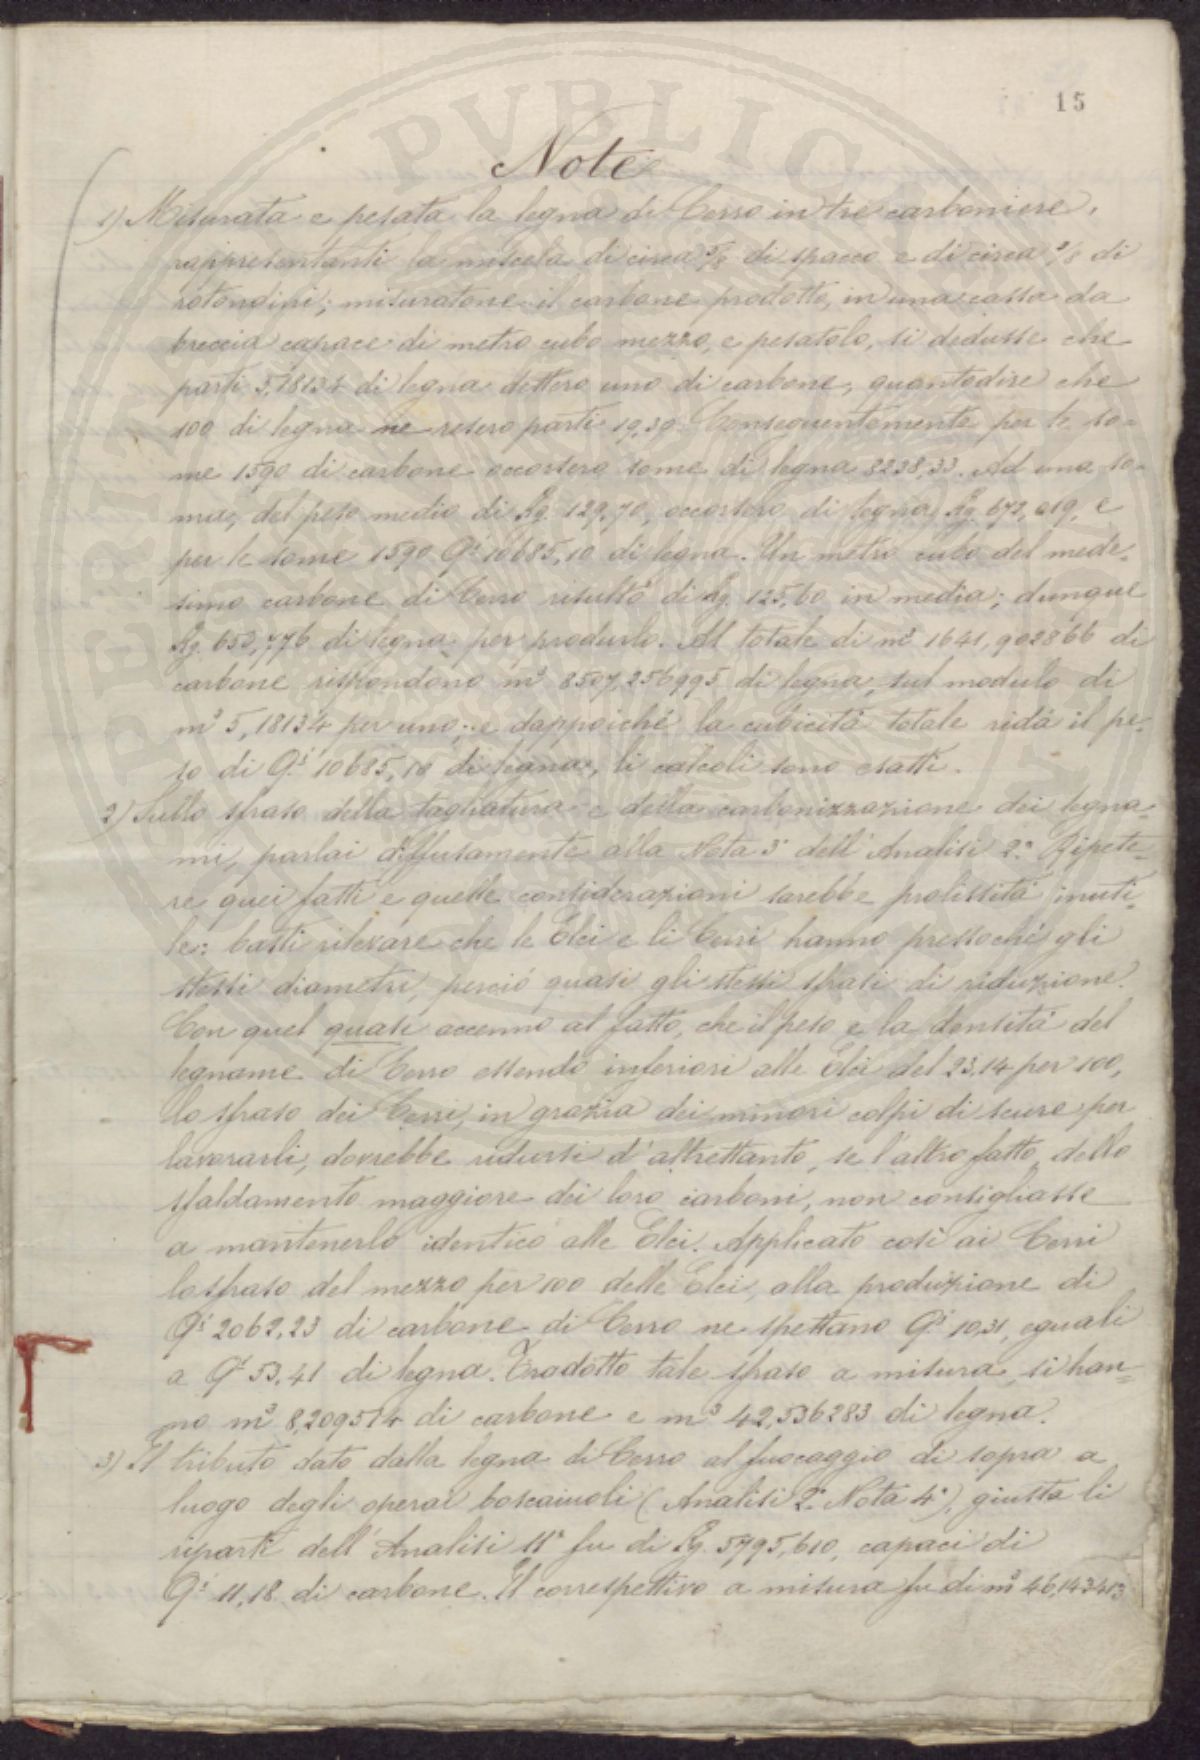 15
Note
1) Misurata e pesata la legna di Cerro in tre carboniere,
rappresentanti la miscela di circa /8 di spacco e di circa /8 di
rotondini; misuratone il carbone prodotto, in una cassa da
breccia capace di metro cubo mezzo, e pesatolo, si dedusse che
parti 5,18134 di legna dettero uno di carbone; quantodire che
100 di legna ne resero parti 19,30. Conseguentemente per le so=
me 1590 di carbone occorsero some di legna 8238,33. Ad una so=
ma, del peso medio di Kg. 129,70, occorsero di legna Kg. 672,019, e
per le some 1590 Qi 10685,10 di legna. Un metro cubo del mede=
simo carbone di Cerro risultò di Kg. 125,60 in media; dunque
Kg. 650,776 di legna per produrlo. Al totale di m3 1641,902866 di
carbone rispondono m3 8507,256995 di legna, sul modulo di
m3 5,18134 per uno; e dappoiché la cubicità totale ridà il pe=
so di Qi 10685,10 di legna, li calcoli sono esatti.
2) Sullo sfraso della tagliatura e della carbonizzazione dei legna=
mi, parlai diffusamente alla Nota 3a dell'Analisi 2a. Ripete=
re quei fatti e quelle considerazioni sarebbe prolissità inuti=
le: basti rilevare che le Elci e li Cerri hanno pressoché gli
stessi diametri, perciò quasi gli stessi sfrasi di riduzione.
Con quel quasi accenno al fatto, che il peso e la densità del
legname di Cerro essendo inferiori alle Elci del 23,14 per 100,
lo sfraso dei Cerri, in grazia dei minori colpi di scure per
lavorarli, dovrebbe ridursi d'altrettanto, se l'altro fatto dello
sfaldamento maggiore dei loro carboni, non consigliasse
a mantenerlo identico alle Elci. Applicato così ai Cerri
lo sfraso del mezzo per 100 delle Elci, alla produzione di
Qi 2062,23 di carbone di Cerro ne spettano Qi 10,31, eguali
a Qi 53,41 di legna. Tradotto tale sfraso a misura, si han=
no m3 8,209514 di carbone e m3 42,536283 di legna.
3) Il tributo dato dalla legna di Cerro al fuocaggio di sopra a
luogo degli operai boscaiuoli (Analisi 2a Nota 4a), giusta li
riparti dell'Analisi 11a fu di Kg. 5795,610, capaci di
Qi 11,18 di carbone. Il correspettivo a misura fu di m3 46,143413